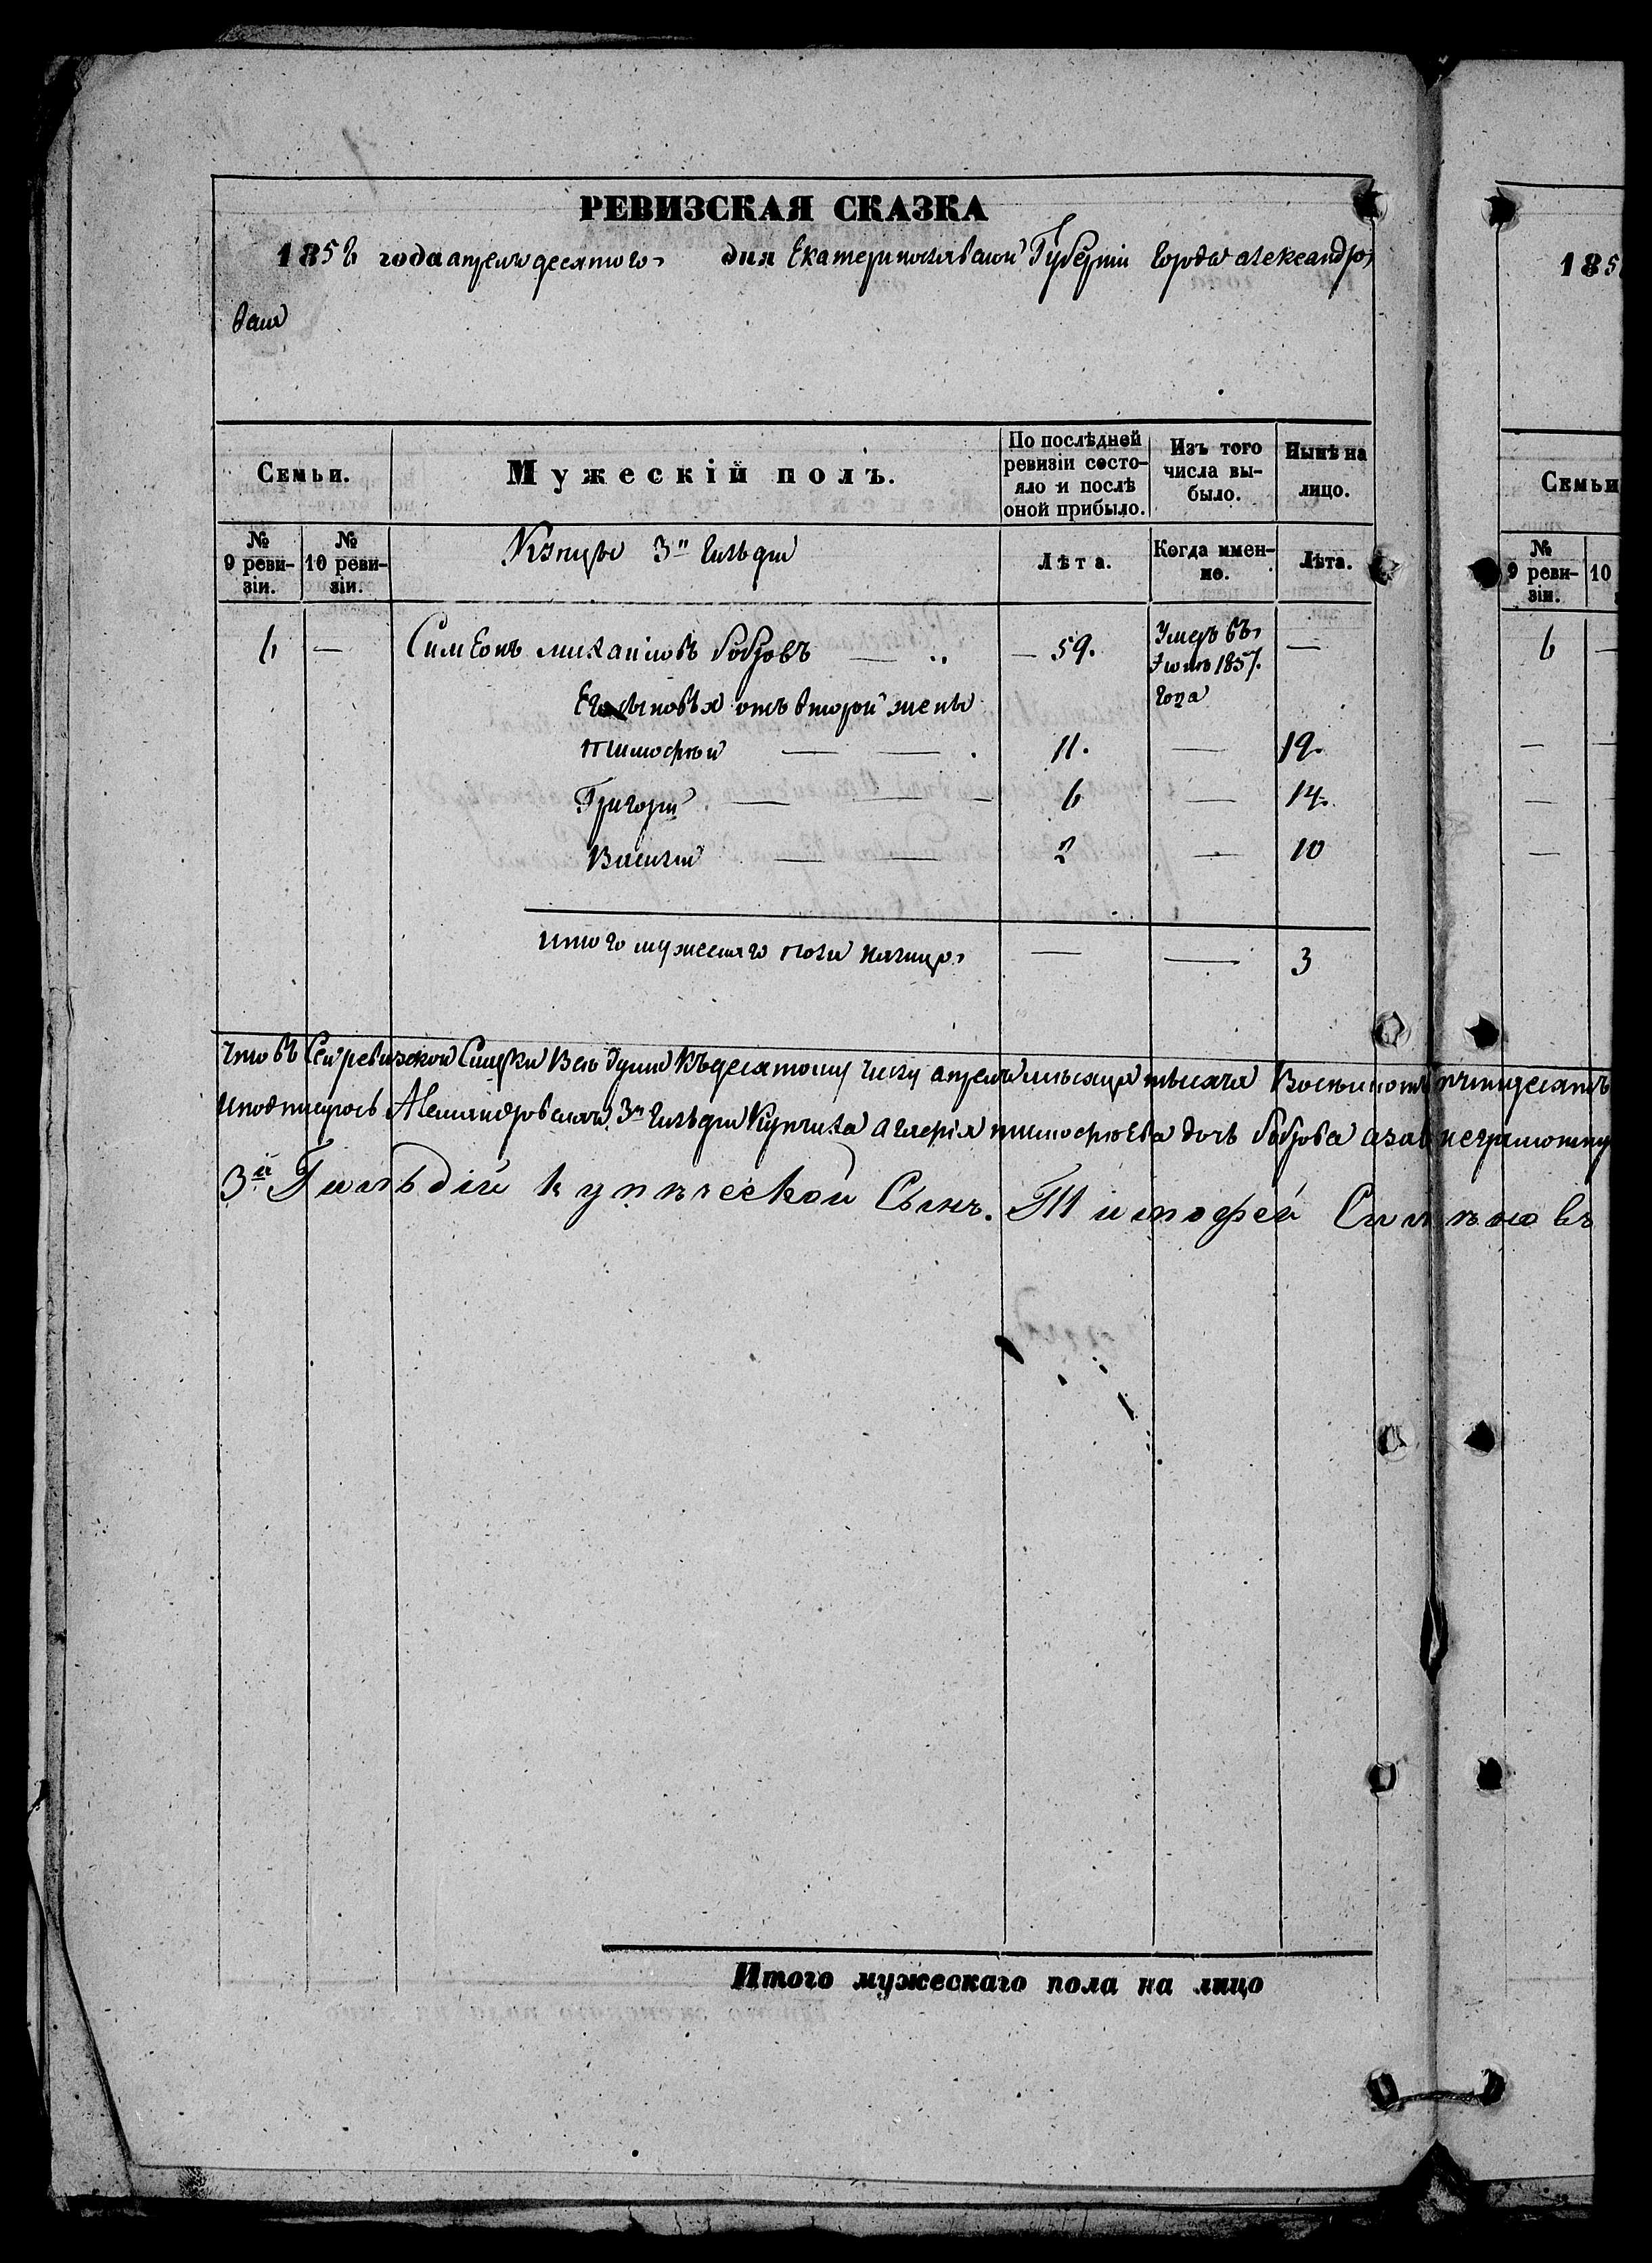 РЕВИЗСКАЯ СКАЗКА
1858 года апреля десятого дня Екатеринославской Губернии города Александро
вска
Семьи.
Мужескій полъ.
По послѣдней ревизіи состояло и послѣ оной прибыло.
Изъ того числа выбыло.
Нынѣ на лицо.
№ 9 ревизіи.
№ 10 ревизіи.
Купцы 3й гильдии
Лѣта.
Когда именно.
Лѣта.
6 — Симеонъ Михаиловъ Бобровъ — 59. Умеръ въ Июлѣ 1857. года —
Его сыновья отъ второй жены
Тимофей — — 11. — 19.
Григорий — — 6 — 14.
Василий — — 2 — 10
Итого мужескаго пола налицо — — 3
Что въ сей ревизской Скаски все души къ десятому числу апреля месяца тысяча Восемьсотъ пятидесятъ
и подписуюсь Александровская 3й гильдии Купчиха Тимофеева дочь Боброва а за неграмотну
3й Гильдій купеческой Сынъ. Тимофей Симеоновъ
Итого мужескаго пола на лицо
185
Семьи
№ 9 ревизіи.
10
6 —